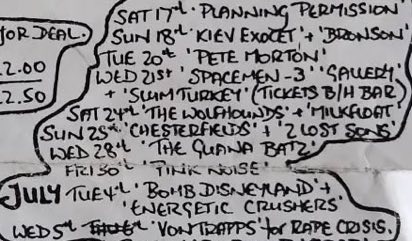 SAT 17th. 'PLANNING PERMISSION'
JOR DEAL.)
SUN 18th 'KIEV EXOCET' + 'BRONSON'
TUE 20th 'PETE MORTON'
2.00
WED 21st 'SPACEMEN-3' 'GALLERY'
2.50
+ 'SLUM TURKEY' (TICKETS B/H BAR)
SAT 24th 'THE WOLFHOUNDS' + 'MILKFLOAT'
SUN 25th 'CHESTERFIELDS' + '2 LOST SONS'
WED 28th 'THE GUANA BATZ'
FRI 30th 'PINK NOISE'
JULY TUE 4th 'BOMB DISNEYLAND' +
'ENERGETIC CRUSHERS'
WED 5th 'VON TRAPPS' for RAPE CRISIS.